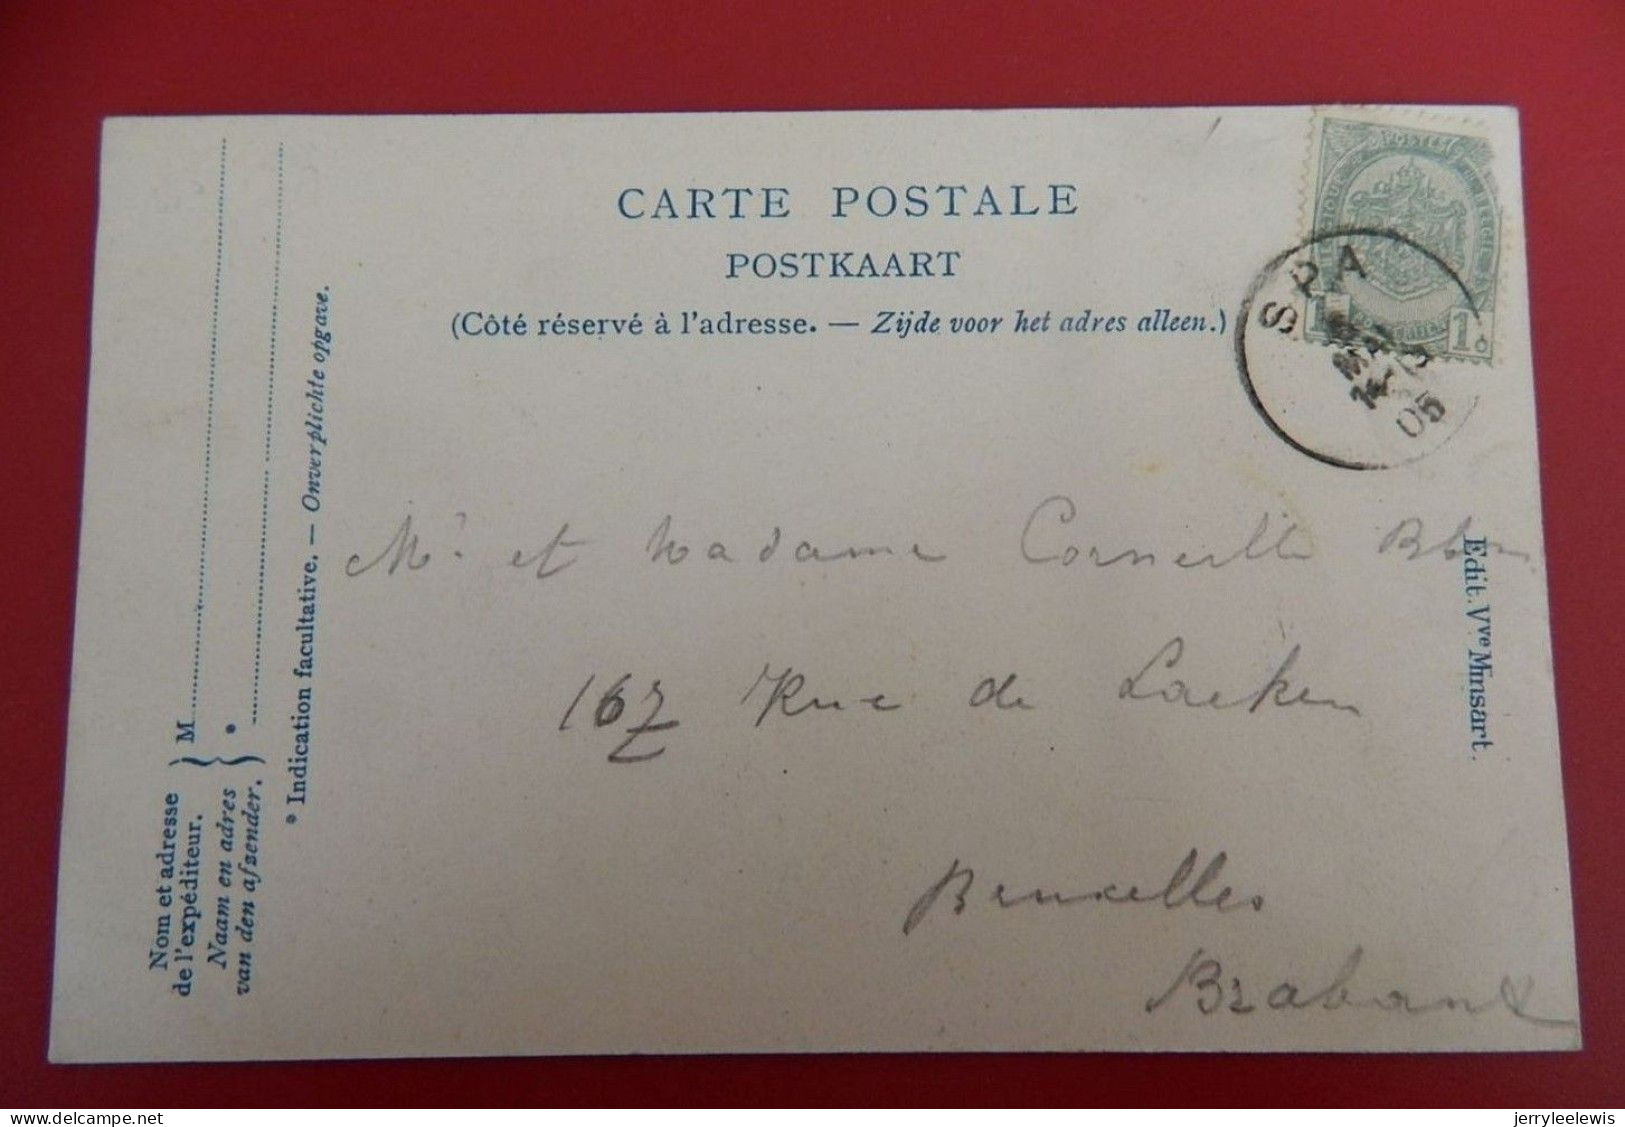 CARTE POSTALE
POSTKAART
(Côté réservé à l'adresse. — Zijde voor het adres alleen.)
POSTES
BELGIQUE
BELGIE
1 1
SPA
MAI
05
Mr et Madame Corneille
167 Rue de Laeken
Bruxelles
Brabant
Edit. Vve Minsart.
Nom et adresse
de l'expéditeur. } M
Naam en adres
van den afzender. } *
* Indication facultative. — Onverplichte opgave.
jerryleelewis